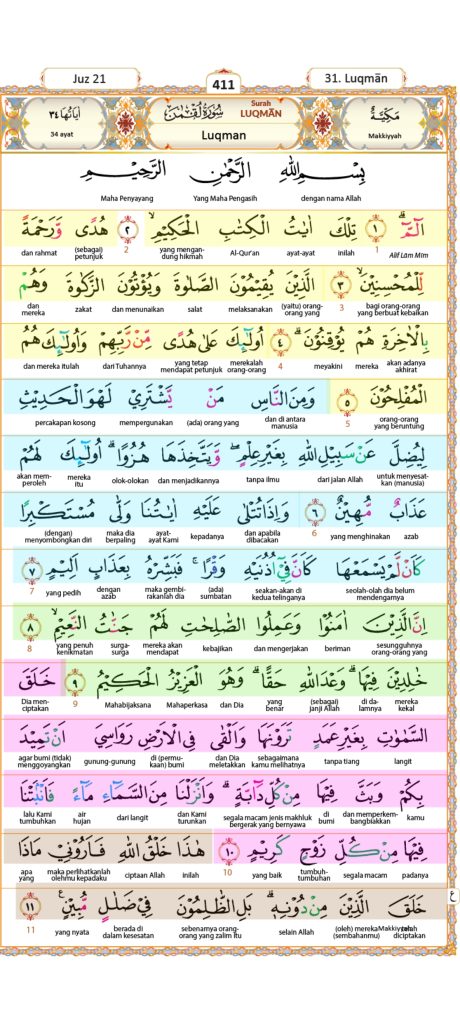 Juz 21
411
31. Luqmān
اٰيَاتُهَا ٣٤
34 ayat
سُوْرَةُ لُقْمٰنَ
Surah
LUQMĀN
Luqman
مَكِّيَّةٌ
Makkiyyah
بِسْمِ اللّٰهِ الرَّحْمٰنِ الرَّحِيْمِ
dengan nama Allah Yang Maha Pengasih Maha Penyayang
الۤمّۤ ۗ ١ تِلْكَ اٰيٰتُ الْكِتٰبِ الْحَكِيْمِۙ ٢ هُدًى وَّرَحْمَةً
Alif Lām Mīm 1 inilah ayat-ayat Al-Qur'an yang mengandung hikmah 2 (sebagai) petunjuk dan rahmat
لِّلْمُحْسِنِيْنَۙ ٣ الَّذِيْنَ يُقِيْمُوْنَ الصَّلٰوةَ وَيُؤْتُوْنَ الزَّكٰوةَ وَهُمْ
bagi orang-orang yang berbuat kebaikan 3 (yaitu) orang-orang yang melaksanakan salat dan menunaikan zakat dan mereka
بِالْاٰخِرَةِ هُمْ يُوْقِنُوْنَۗ ٤ اُولٰۤىِٕكَ عَلٰى هُدًى مِّنْ رَّبِّهِمْ وَاُولٰۤىِٕكَ هُمُ
akan adanya akhirat mereka meyakini 4 merekalah orang-orang yang tetap mendapat petunjuk dari Tuhannya dan mereka itulah
الْمُفْلِحُوْنَ ٥ وَمِنَ النَّاسِ مَنْ يَّشْتَرِيْ لَهْوَ الْحَدِيْثِ
orang-orang yang beruntung 5 dan di antara manusia (ada) orang yang mempergunakan percakapan kosong
لِيُضِلَّ عَنْ سَبِيْلِ اللّٰهِ بِغَيْرِ عِلْمٍۖ وَّيَتَّخِذَهَا هُزُوًاۗ اُولٰۤىِٕكَ لَهُمْ
untuk menyesatkan (manusia) dari jalan Allah tanpa ilmu dan menjadikannya olok-olokan mereka itu akan memperoleh
عَذَابٌ مُّهِيْنٌ ٦ وَاِذَا تُتْلٰى عَلَيْهِ اٰيٰتُنَا وَلّٰى مُسْتَكْبِرًا
azab yang menghinakan 6 dan apabila dibacakan kepadanya ayat-ayat Kami maka dia berpaling (dengan) menyombongkan diri
كَاَنْ لَّمْ يَسْمَعْهَا كَاَنَّ فِيْٓ اُذُنَيْهِ وَقْرًاۚ فَبَشِّرْهُ بِعَذَابٍ اَلِيْمٍ ٧
seolah-olah dia belum mendengarnya seakan-akan di kedua telinganya (ada) sumbatan maka gembirakanlah dia dengan azab yang pedih 7
اِنَّ الَّذِيْنَ اٰمَنُوْا وَعَمِلُوا الصّٰلِحٰتِ لَهُمْ جَنّٰتُ النَّعِيْمِۙ ٨
sesungguhnya orang-orang yang beriman dan mengerjakan kebajikan mereka akan mendapat surga-surga yang penuh kenikmatan 8
خٰلِدِيْنَ فِيْهَاۗ وَعْدَ اللّٰهِ حَقًّاۗ وَهُوَ الْعَزِيْزُ الْحَكِيْمُ ٩ خَلَقَ
mereka kekal di dalamnya (sebagai) janji Allah yang benar dan Dia Mahaperkasa Mahabijaksana 9 Dia menciptakan
السَّمٰوٰتِ بِغَيْرِ عَمَدٍ تَرَوْنَهَا وَاَلْقٰى فِى الْاَرْضِ رَوَاسِيَ اَنْ تَمِيْدَ
langit tanpa tiang sebagaimana kamu melihatnya dan Dia meletakkan di (permukaan) bumi gunung-gunung agar bumi (tidak) menggoyangkan
بِكُمْ وَبَثَّ فِيْهَا مِنْ كُلِّ دَاۤبَّةٍۗ وَاَنْزَلْنَا مِنَ السَّمَاۤءِ مَاۤءً فَاَنْۢبَتْنَا
kamu dan memperkembangbiakkan di bumi segala macam jenis makhluk bergerak yang bernyawa dan Kami turunkan dari langit air hujan lalu Kami tumbuhkan
فِيْهَا مِنْ كُلِّ زَوْجٍ كَرِيْمٍ ١٠ هٰذَا خَلْقُ اللّٰهِ فَاَرُوْنِيْ مَاذَا
padanya segala macam tumbuh-tumbuhan yang baik 10 Inilah ciptaan Allah maka perlihatkanlah olehmu kepadaku apa yang
خَلَقَ الَّذِيْنَ مِنْ دُوْنِهٖۗ بَلِ الظّٰلِمُوْنَ فِيْ ضَلٰلٍ مُّبِيْنٍ ࣖ ١١
diciptakan (oleh) mereka (sembahanmu) selain Allah sebenarnya orang-orang yang zalim itu berada di dalam kesesatan yang nyata 11
Makkiyyah
ع